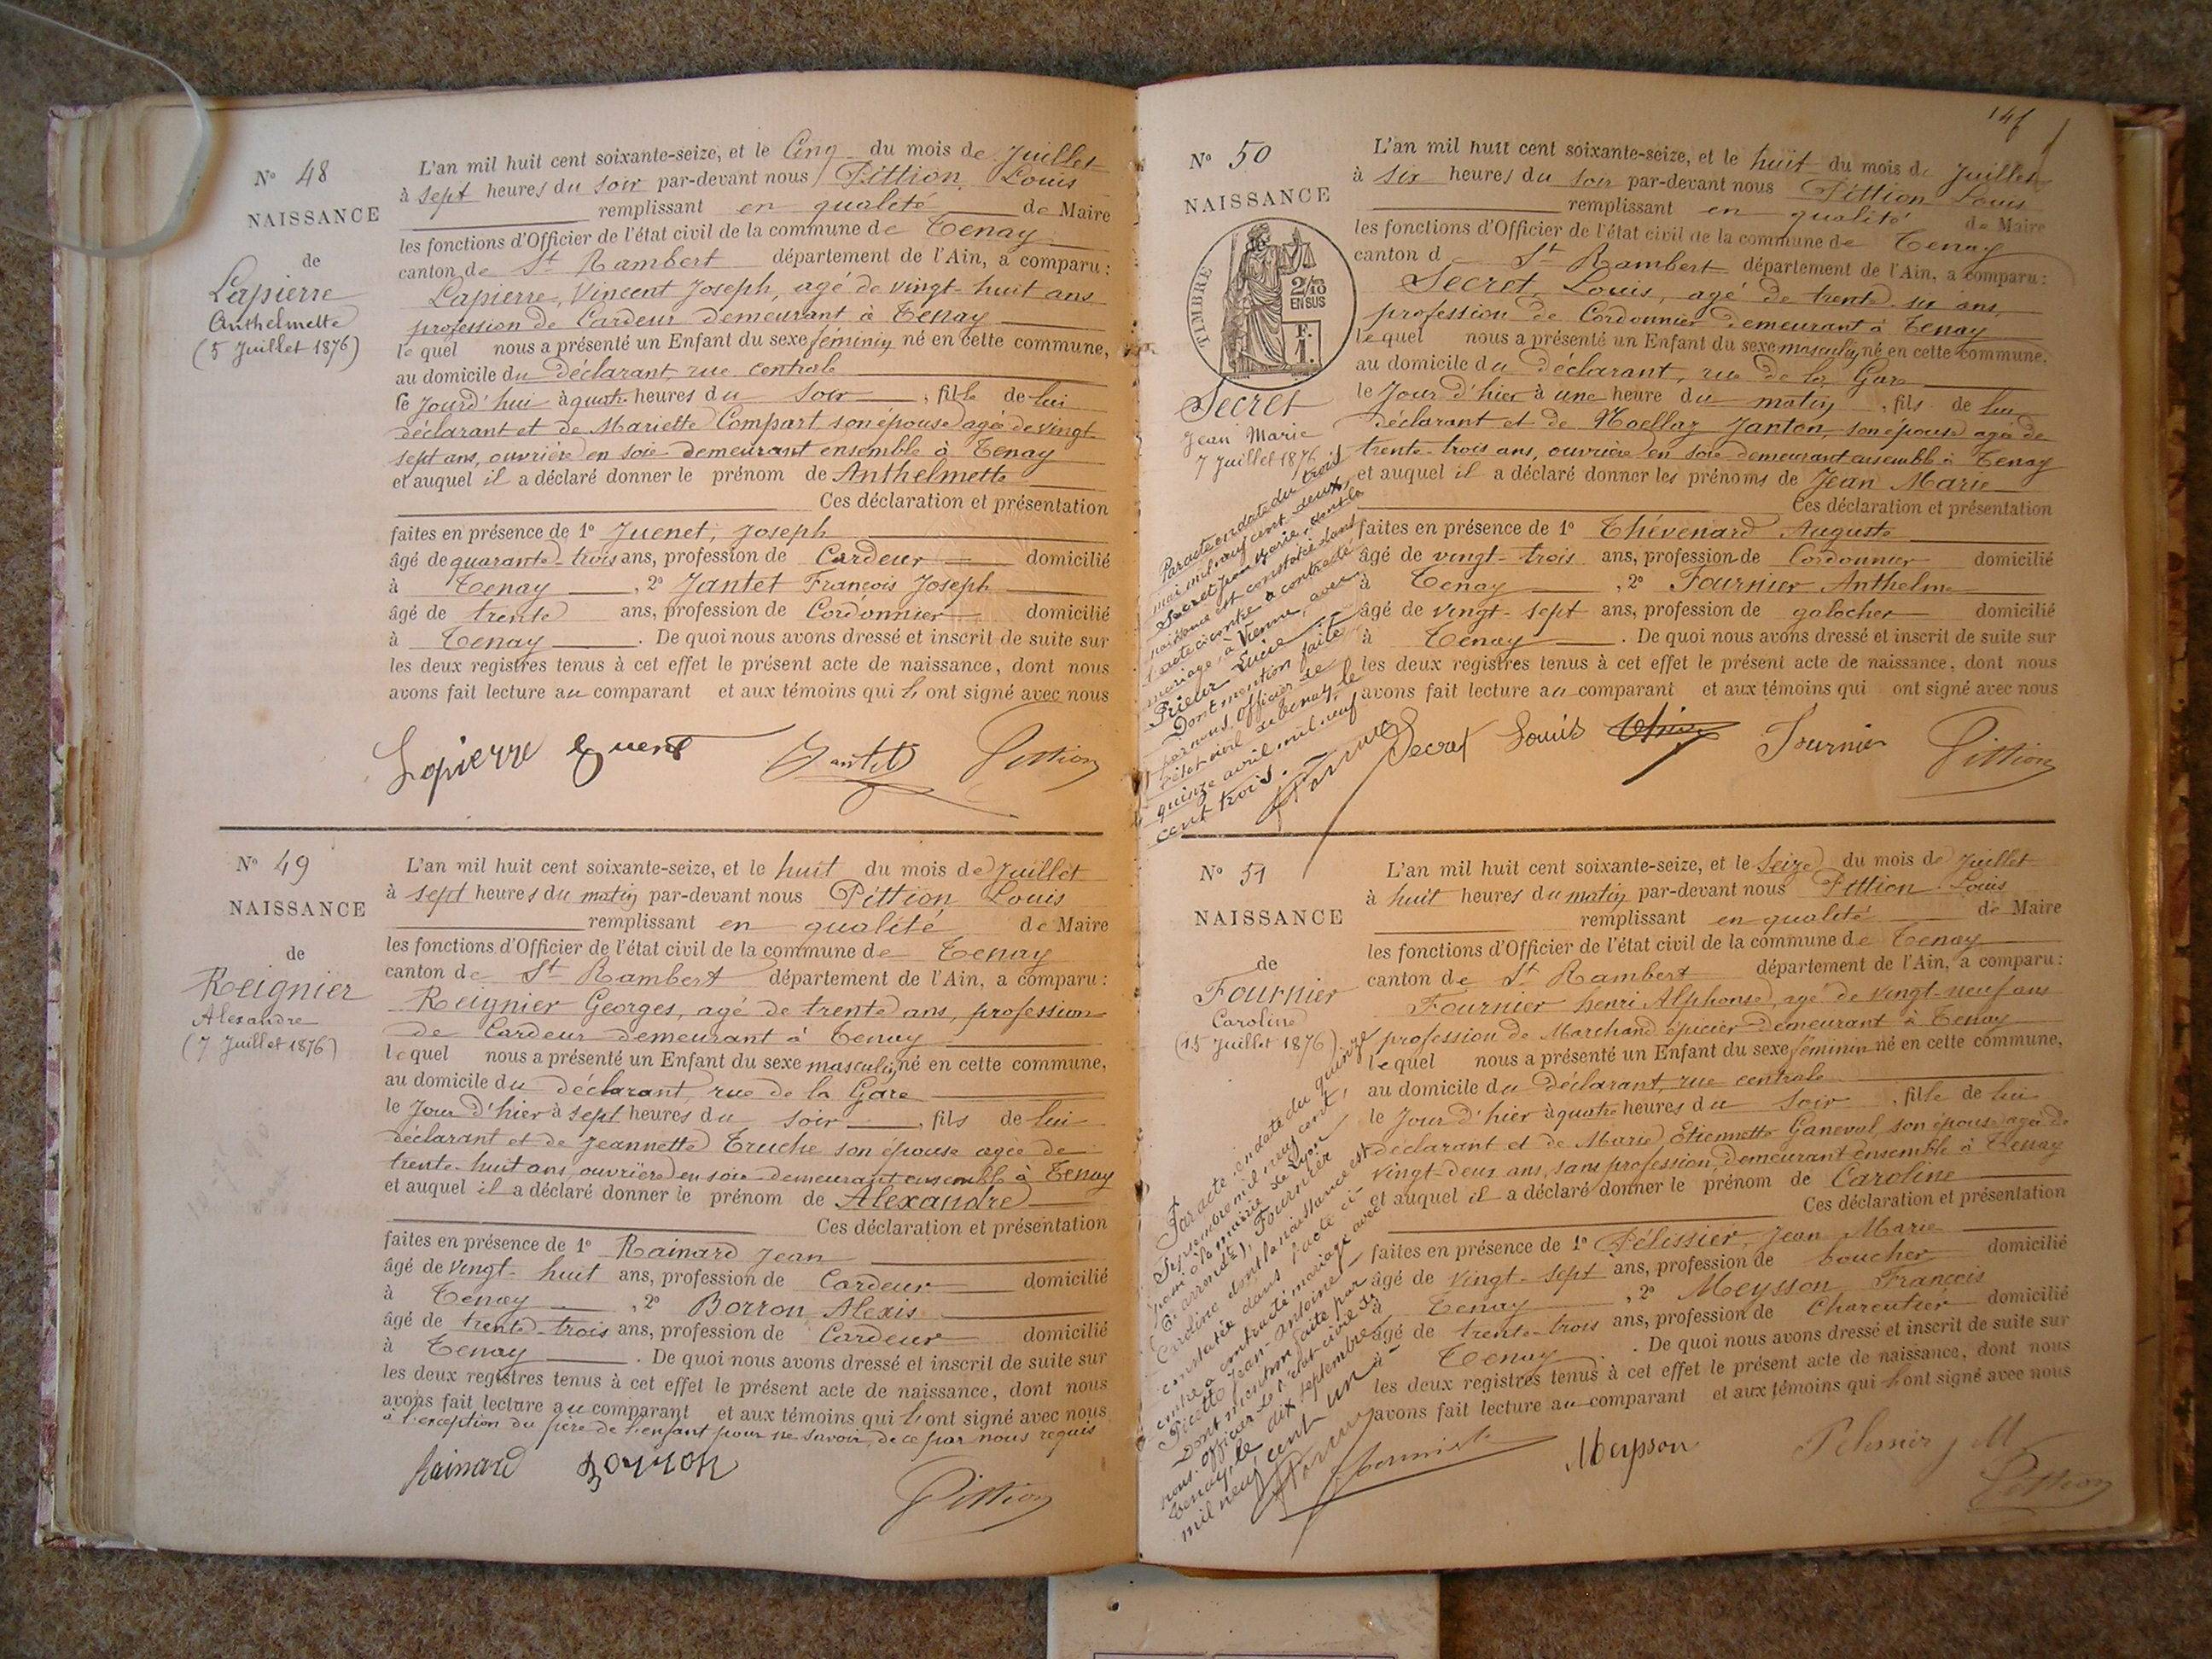 N° 48
NAISSANCE
de
Lapierre
Anthelmette
(5 Juillet 1876)
L'an mil huit cent soixante-seize, et le Cinq du mois de Juillet
à sept heures du soir par-devant nous Pittion Louis
remplissant en qualité de Maire
les fonctions d'Officier de l'état civil de la commune de Tenay
canton de St Rambert département de l'Ain, a comparu:
Lapierre, Vincent Joseph, agé de vingt-huit ans
profession de Cardeur demeurant à Tenay
lequel nous a présenté un Enfant du sexe féminin né en cette commune,
au domicile du déclarant, rue centrale
le jourd'hui à quatre heures du soir, fille de lui
déclarant et de Mariette Compart son épouse agée de vingt
sept ans, ouvrière en soie demeurant ensemble à Tenay
et auquel il a déclaré donner le prénom de Anthelmette
Ces déclaration et présentation
faites en présence de 1° Juenet, Joseph
âgé de quarante-trois ans, profession de Cardeur domicilié
à Tenay, 2° Jantet François Joseph
âgé de trente ans, profession de Cordonnier domicilié
à Tenay. De quoi nous avons dressé et inscrit de suite sur
les deux registres tenus à cet effet le présent acte de naissance, dont nous
avons fait lecture au comparant et aux témoins qui ont signé avec nous
Lapierre Juenet Jantet Pittion
N° 49
NAISSANCE
de
Reignier
Alexandre
(7 Juillet 1876)
L'an mil huit cent soixante-seize, et le huit du mois de Juillet
à sept heures du matin par-devant nous Pittion Louis
remplissant en qualité de Maire
les fonctions d'Officier de l'état civil de la commune de Tenay
canton de St Rambert département de l'Ain, a comparu:
Reignier Georges, agé de trente ans, profession
de Cardeur demeurant à Tenay
lequel nous a présenté un Enfant du sexe masculin né en cette commune,
au domicile du déclarant, rue de la Gare
le Jour d'hier à sept heures du soir, fils de lui
déclarant et de Jeannette Truche son épouse agée de
trente-huit ans, ouvrière en soie demeurant ensemble à Tenay
et auquel il a déclaré donner le prénom de Alexandre
Ces déclaration et présentation
faites en présence de 1° Rainard Jean
âgé de vingt-huit ans, profession de Cardeur domicilié
à Tenay, 2° Borron Alexis
âgé de trente-trois ans, profession de Cardeur domicilié
à Tenay. De quoi nous avons dressé et inscrit de suite sur
les deux registres tenus à cet effet le présent acte de naissance, dont nous
avons fait lecture au comparant et aux témoins qui ont signé avec nous
à l'exception du père de l'enfant pour ne savoir, de ce par nous requis
Rainard Borron
Pittion
N° 50
NAISSANCE
TIMBRE
2/10
EN SUS
F.
1.
Secret
Jean Marie
7 Juillet 1876
Par acte en date du trois
mai mil neuf cent deux,
Secret Jean Marie, dont la
naissance est constatée dans
l'acte ci contre a contracté
mariage, à Vienne, avec
Prieur Lucie
Dont mention faite
par nous, officier de
l'état civil de Tenay, le
quinze avril mil neuf
cent trois.
L'an mil huit cent soixante-seize, et le huit du mois de Juillet
à six heures du soir par-devant nous Pittion Louis
remplissant en qualité de Maire
les fonctions d'Officier de l'état civil de la commune de Tenay
canton d St Rambert département de l'Ain, a comparu:
Secret, Louis, agé de trente-six ans,
profession de Cordonnier demeurant à Tenay
lequel nous a présenté un Enfant du sexe masculin né en cette commune,
au domicile du déclarant, rue de la Gare
le Jour d'hier à une heure du matin, fils de lui
déclarant et de Janton, son épouse agée de
trente-trois ans, ouvrière en soie demeurant ensemble à Tenay
et auquel il a déclaré donner les prénoms de Jean Marie
Ces déclaration et présentation
faites en présence de 1° Thévenard Auguste
âgé de vingt-trois ans, profession de Cordonnier domicilié
à Tenay, 2° Fournier Anthelme
âgé de vingt-sept ans, profession de galocher domicilié
à Tenay. De quoi nous avons dressé et inscrit de suite sur
les deux registres tenus à cet effet le présent acte de naissance, dont nous
avons fait lecture au comparant et aux témoins qui ont signé avec nous
Secret Louis Fournier Pittion
N° 51
NAISSANCE
de
Fournier
Caroline
(15 Juillet 1876)
Par acte en date du quinze
mil neuf cent,
à la mairie de Lyon
Fournier
Caroline dont la naissance est
constatée dans l'acte ci-
contre a contracté mariage avec
Jean-Antoine
Dont mention faite par
nous, officier de l'état-civil de
Tenay, le dix septembre
mil neuf cent un
L'an mil huit cent soixante-seize, et le Seize du mois de Juillet
à huit heures du matin par-devant nous Pittion Louis
remplissant en qualité de Maire
les fonctions d'Officier de l'état civil de la commune de Tenay
canton de St Rambert département de l'Ain, a comparu:
Fournier henri Alphonse, agé de vingt-neuf ans
profession de Marchand épicier demeurant à Tenay
lequel nous a présenté un Enfant du sexe féminin né en cette commune,
au domicile du déclarant, rue centrale
le Jour d'hier à quatre heures du soir, fille de lui
déclarant et de Marie Etiennette Ganeval, son épouse agée de
vingt-deux ans, sans profession, demeurant ensemble à Tenay
et auquel il a déclaré donner le prénom de Caroline
Ces déclaration et présentation
faites en présence de 1° Pélissier, Jean Marie
âgé de vingt-sept ans, profession de boucher domicilié
à Tenay, 2° Meysson François
âgé de trente-trois ans, profession de Charcutier domicilié
à Tenay. De quoi nous avons dressé et inscrit de suite sur
les deux registres tenus à cet effet le présent acte de naissance, dont nous
avons fait lecture au comparant et aux témoins qui ont signé avec nous
Meysson Pittion